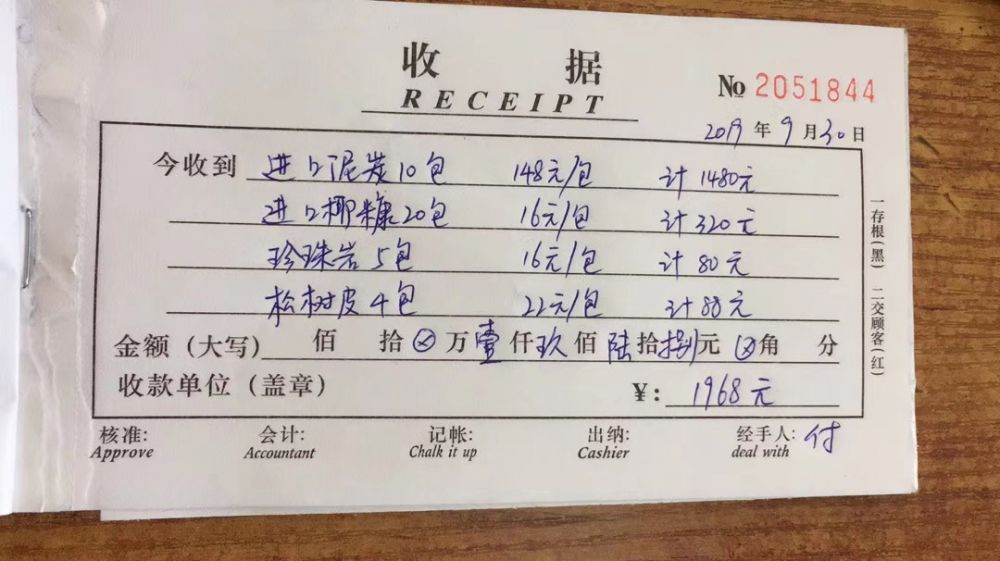 收 据
RECEIPT
No 2051844
2019 年 9 月 30 日
今收到 进口泥炭10包 148元/包 计1480元
进口椰糠20包 16元/包 计320元
珍珠岩5包 16元/包 计80元
松树皮4包 22元/包 计88元
金额（大写） 佰 拾 ⊗ 万 壹 仟 玖 佰 陆 拾 捌 元 ⊗ 角 分
收款单位（盖章） ¥: 1968元
核准: 会计: 记帐: 出纳: 经手人: 付
Approve Accountant Chalk it up Cashier deal with
一存根(黑) 二交顾客(红)